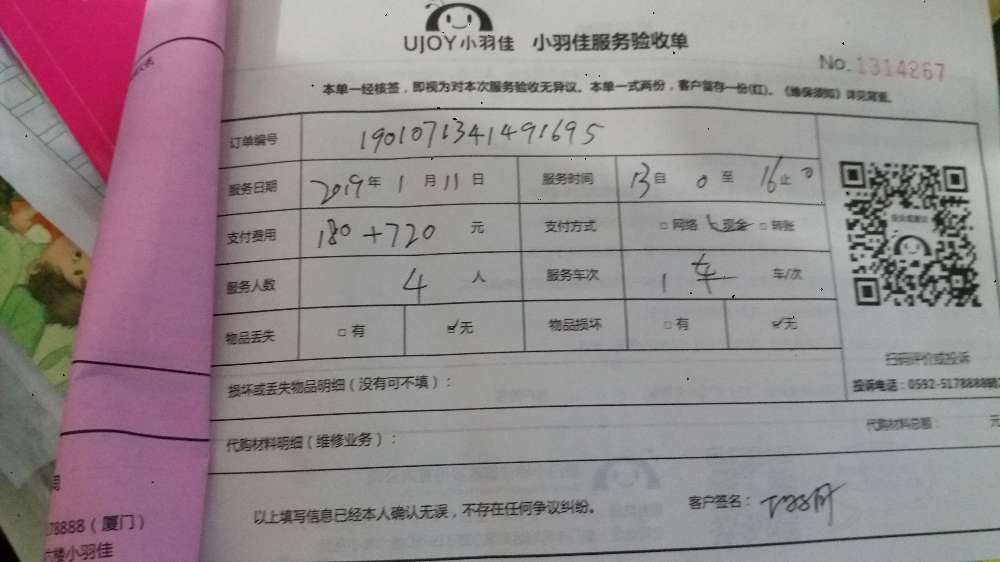 UJOY小羽佳 小羽佳服务验收单
No.1314267
本单一经核签，即视为对本次服务验收无异议。本单一式两份，客户留存一份(红)。《维保须知》详见背面。
订单编号 1901071341491695
服务日期 2019年1月11日 服务时间 13自0至16止0
支付费用 180+720 元 支付方式 □网络 现金 □转账
服务人数 4 人 服务车次 1车 车/次
物品丢失 □有 ☑无 物品损坏 □有 ☑无
扫码评价或投诉
投诉电话：0592-5178888转
损坏或丢失物品明细（没有可不填）：
代购材料明细（维修业务）： 代购材料总额： 元
以上填写信息已经本人确认无误，不存在任何争议纠纷。 客户签名：
78888（厦门）
楼小羽佳